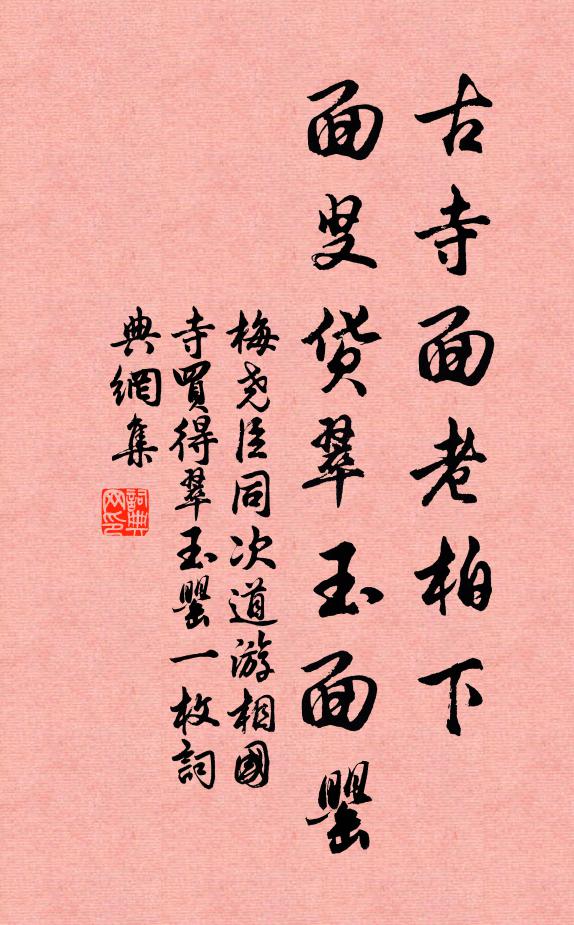 古寺面老柏下
面叟货翠玉面罂
梅尧臣同次道游相國
寺買得翠玉罌一枚詞
典網集
詞典网印